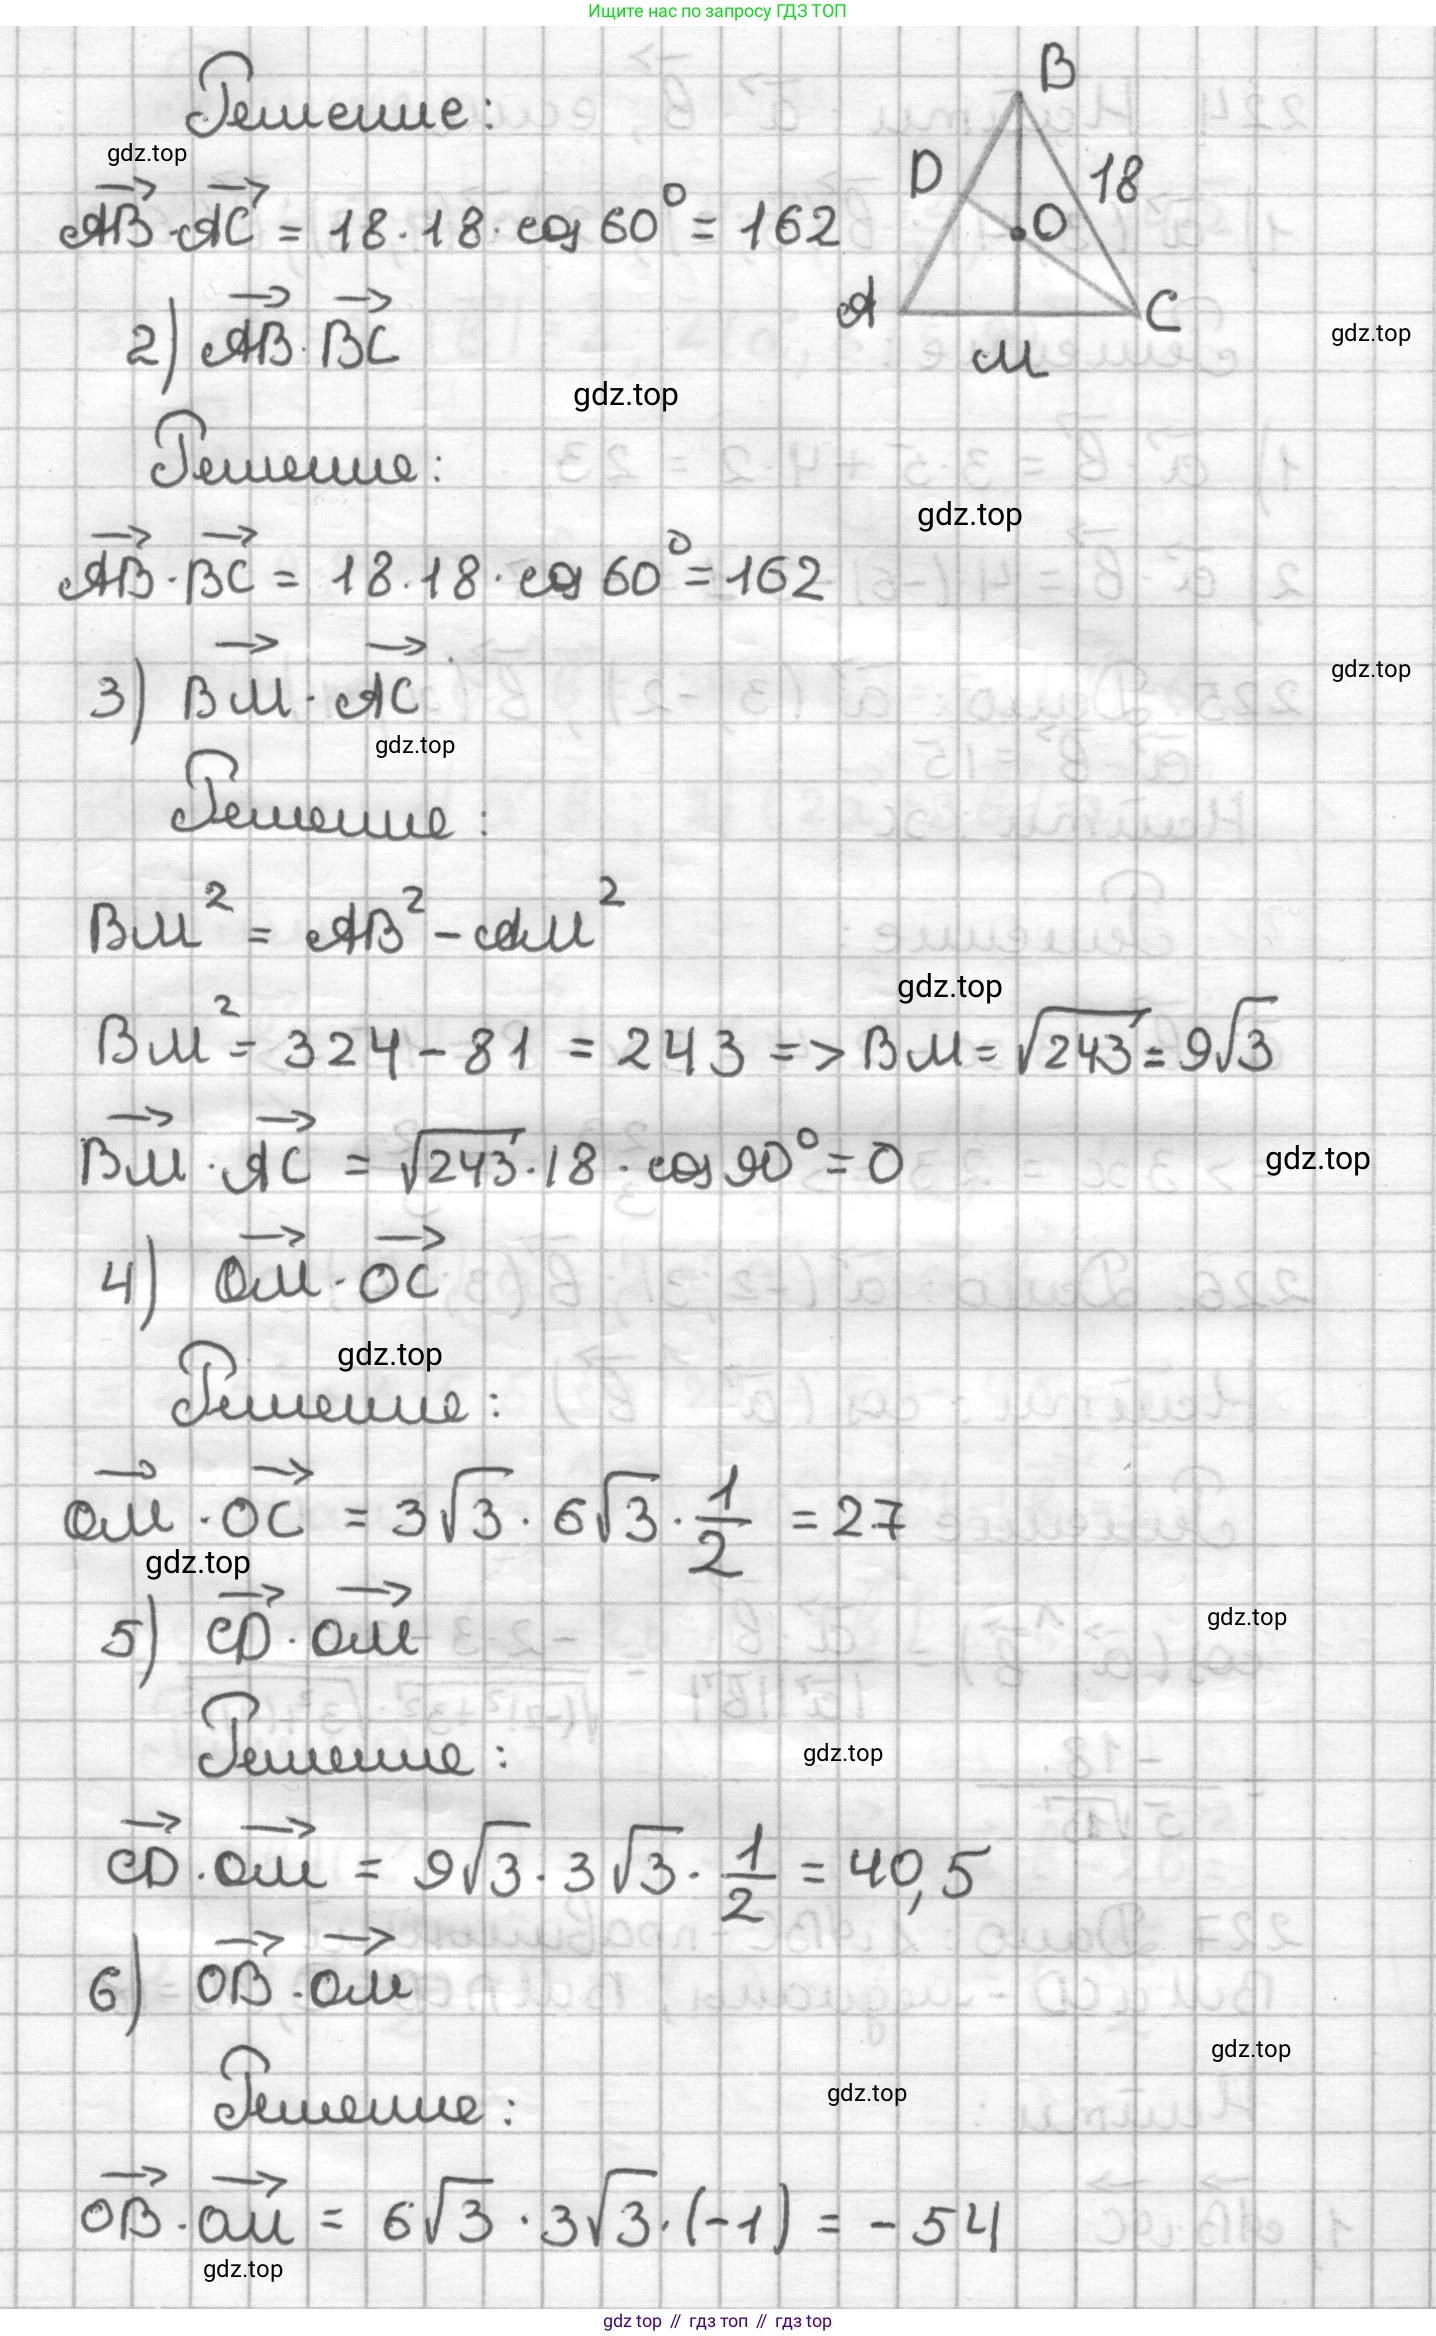 Ищите нас по запросу ГДЗ ТОП
Решение:
B
gdz.top
D
18
AB·AC = 18·18·cos 60° = 162
O
A
C
gdz.top
M
2) AB·BC
gdz.top
Решение:
gdz.top
AB·BC = 18·18·cos 60° = 162
3) BM·AC
gdz.top
gdz.top
Решение:
BM² = AB² - AM²
gdz.top
BM² = 324 - 81 = 243 => BM = √243 = 9√3
BM·AC = √243·18·cos 90° = 0
gdz.top
4) OM·OC
gdz.top
Решение:
OM·OC = 3√3·6√3·1/2 = 27
gdz.top
5) CD·OM
gdz.top
Решение:
gdz.top
CD·OM = 9√3·3√3·1/2 = 40,5
6) OB·OM
gdz.top
Решение:
gdz.top
OB·OM = 6√3·3√3·(-1) = -54
gdz.top
gdz top // гдз топ // гдз top